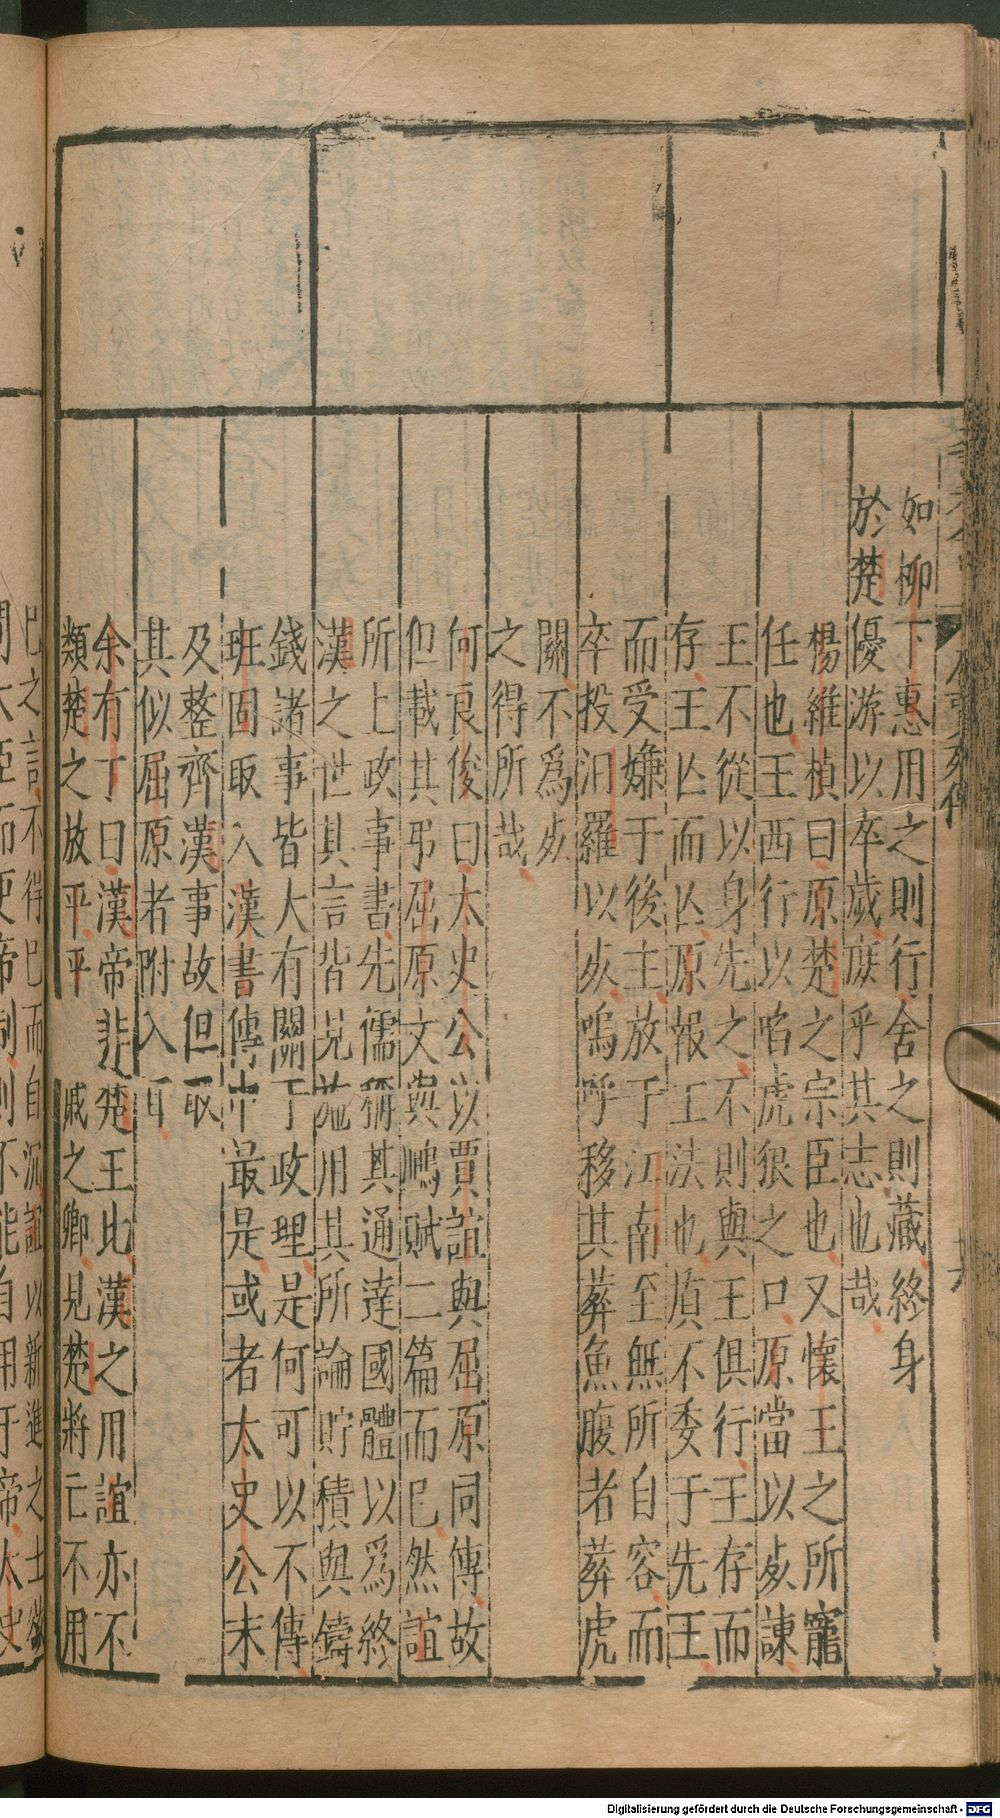 如柳下惠用之則行舍之則藏終身
於楚優游以卒歲庻乎其志也哉
楊維楨曰原楚之宗臣也又懷王之所寵
任也王西行以啗虎狼之口原當以死諌
王不從以身先之不則與王俱行王存而
存王亾而亾原報王法也原不委于先王
而受嫌于後主放于江南至無所自容而
卒投汨羅以死嗚呼移其葬魚腹者葬虎
關不為死
之得所哉
何良俊曰太史公以賈誼與屈原同傳故
但載其弔屈原文與鵩賦二篇而巳然誼
所上政事書先儒稱其通逹國體以為終
漢之世其言皆見施用其所論貯積與鑄
錢諸事皆大有關于政理是何可以不傳
班固取入漢書傳中最是或者太史公未
及整齊漢事故但取
其似屈原者附入耳
余有丁曰漢帝非楚王比漢之用誼亦不
類楚之放平平　戚之卿見楚將亡不用
巳之言不得巳而自沉誼以新進之士欲
屈賈列傳
Digitalisierung gefördert durch die Deutsche Forschungsgemeinschaft - DFG